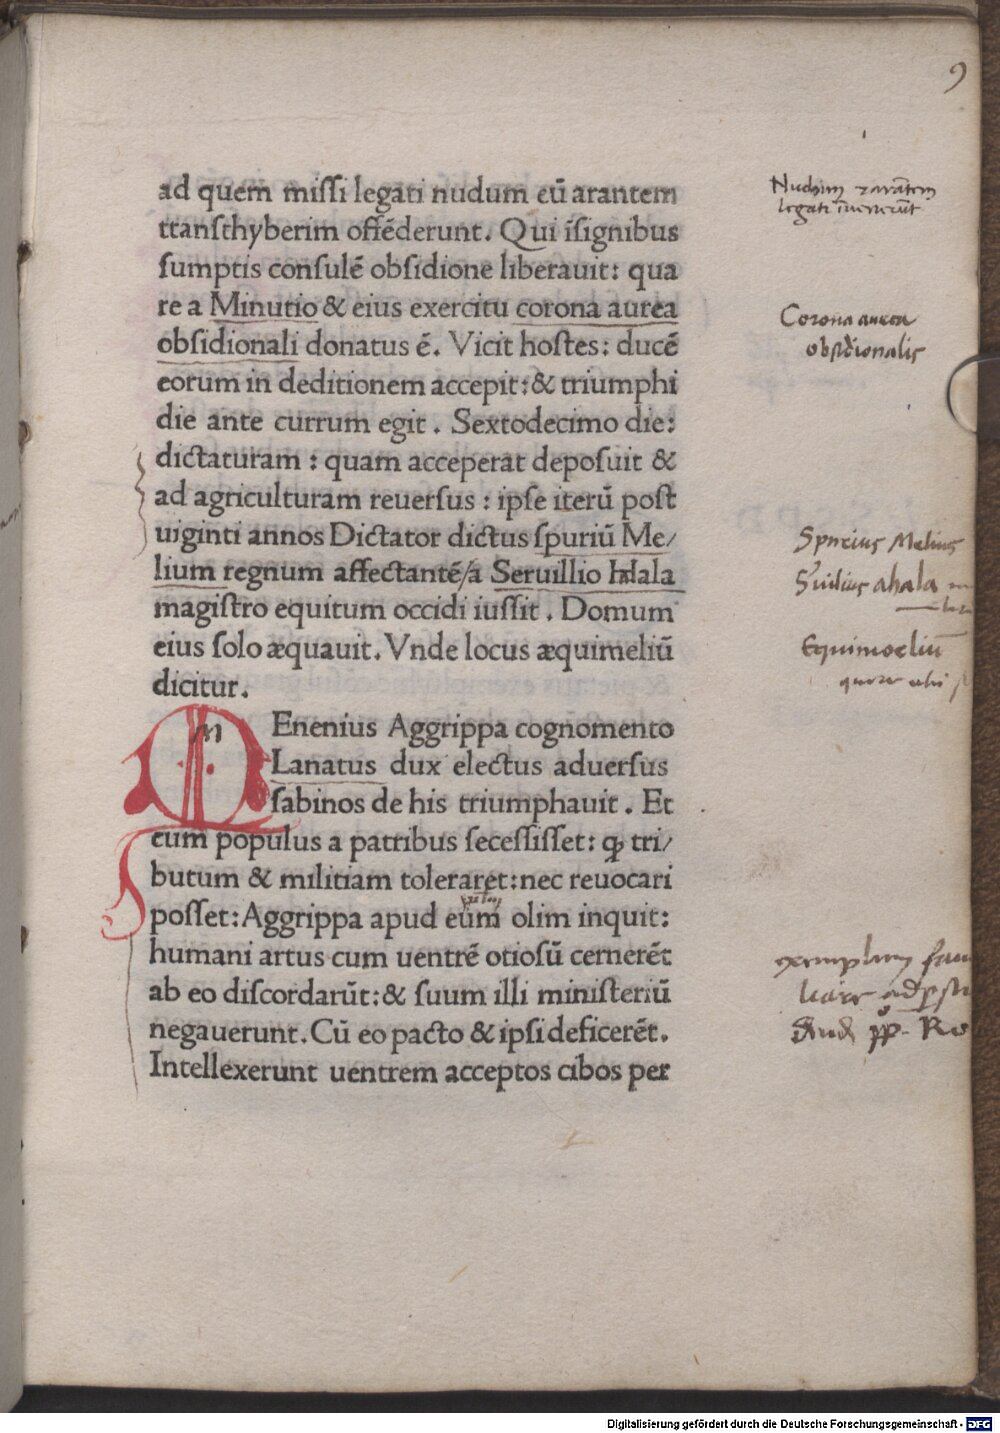 9
ad quem missi legati nudum eū arantem
ttansthyberim offēderunt. Qui īsignibus
sumptis consulē obsidione liberauit: qua
re a Minutio & eius exercitu corona aurea
obsidionali donatus ē. Vicit hostes: ducē
eorum in deditionem accepit: & triumphi
die ante currum egit. Sextodecimo die:
dictaturam: quam acceperat deposuit &
ad agriculturam reuersus: ipse iterū post
uiginti annos Dictator dictus spuriū Me/
lium regnum affectantē/a Seruillio Hala
magistro equitum occidi iussit. Domum
eius solo æquauit. Vnde locus æquimeliū
dicitur.
M
Enenius Aggrippa cognomento
Lanatus dux electus aduersus
sabinos de his triumphauit. Et
cum populus a patribus secessisset: ꝙ tri/
butum & militiam toleraret: nec reuocari
posset: Aggrippa apud eūm olim inquit:
humani artus cum uentrē otiosū cernerēt
ab eo discordarūt: & suum illi ministeriū
negauerunt. Cū eo pacto & ipsi deficerēt.
Intellexerunt uentrem acceptos cibos per
Nudum arātem
legati īuenerūt
Corona aurea
obsidionalis
Spurius Melius
Seruilius ahala
Equimoeliū
exemplum
Digitalisierung gefördert durch die Deutsche Forschungsgemeinschaft - DFG